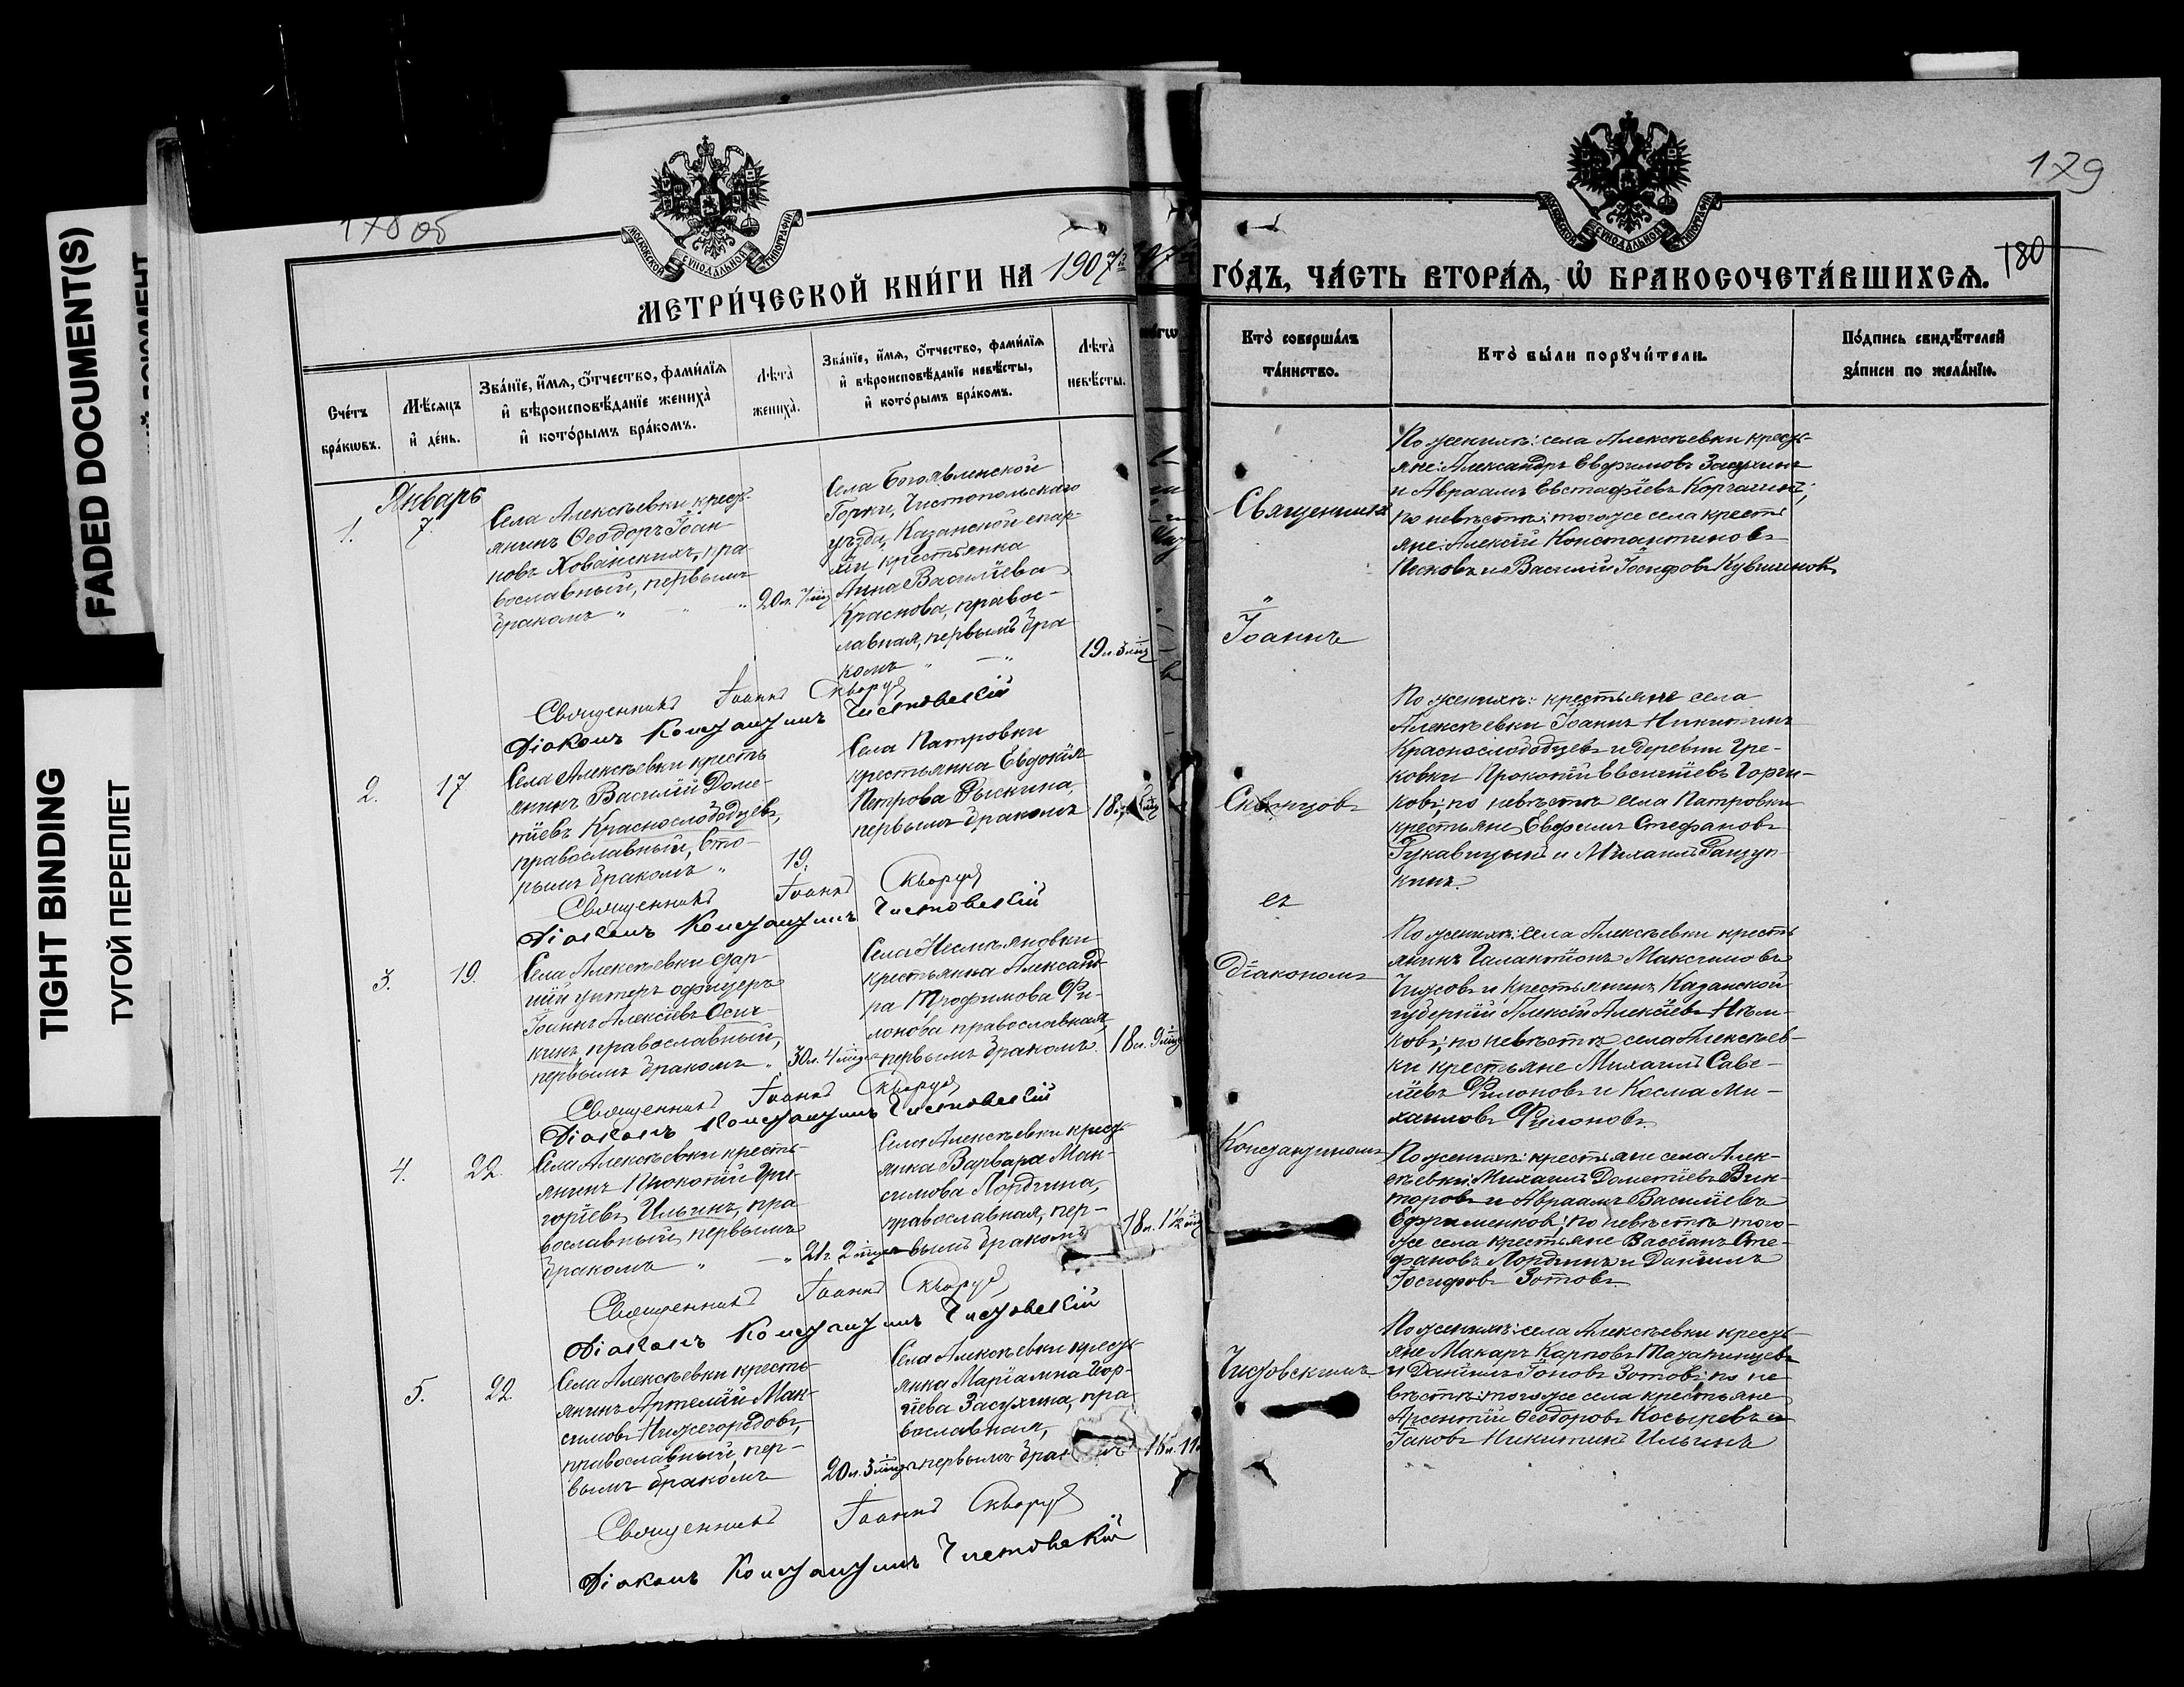 FADED DOCUMENT(S)
TIGHT BINDING
ТУГОЙ ПЕРЕПЛЕТ
178 об
МОСКОВСКОЙ СѴНОДАЛЬНОЙ ТИПОГРАФІИ
МЕТРИ́ЧЕСКОЙ КНИ́ГИ НА 1907
Сче́тъ бра́кѡвъ.
Мѣ́сяцъ и҆ де́нь.
Зва́нїе, и҆́мя, ѻ҆́тчество, фами́лїя
и҆ вѣроисповѣ́данїе жениха̀
и҆ кото́рымъ бра́комъ.
Лѣта̀ жениха̀.
Зва́нїе, и҆́мя, ѻ҆́тчество, фами́лїя
и҆ вѣроисповѣ́данїе невѣ́сты,
и҆ кото́рымъ бра́комъ.
Лѣта̀ невѣ́сты.
Январь
1.
7.
Села Алексѣевки кресть-
янинъ Ѳеодоръ Іоан-
новъ Хованскихъ, пра
вославный, первымъ
бракомъ
20 л. 7 мц
Села Богоявленской
Горки, Чистопольскаго
уѣзда, Казанской епар-
хіи крестьянка
Анна Василіева
Краснова, правос-
лавная, первымъ бра
комъ
19 л. 5 мц
Священникъ Іоаннъ Скворцовъ
Діаконъ Константинъ Чистовскій
2.
17
Села Алексѣевки кресть
янинъ Василій Доме-
тіевъ Краснослободцевъ,
православный, вто-
рымъ бракомъ
19.
Села Патровки
крестьянка Евдокія
Петрова Рыскина,
первымъ бракомъ
Священникъ Іоаннъ Скворцовъ
Діаконъ Константинъ Чистовскій
3.
19.
Села Алексѣевки
унтеръ офицеръ
Іоаннъ Алексіевъ Осич-
кинъ православный,
первымъ бракомъ
30 л. 4 мца
Села Несмѣяновки
крестьянка Александ-
ра Трофимова Фи-
лонова православная,
первымъ бракомъ.
18 л. 9 мц
Священникъ Іоаннъ Скворцовъ
Діаконъ Константинъ Чистовскій
4.
22.
Села Алексѣевки кресть-
янинъ Прокопій Гри-
горіевъ Ильинъ, пра
вославный, первымъ
бракомъ
21 г. 2 мца
Села Алексѣевки кресть-
янка Варвара Мак-
симова Лордкина,
православная, пер-
вымъ бракомъ
18 л. 1 1/2 мц
Священникъ Іоаннъ Скворцовъ
Діаконъ Константинъ Чистовскій
5.
22.
Села Алексѣевки кресть-
янинъ Артемій Мак-
симовъ Нижегородовъ,
православный, пер-
вымъ бракомъ
20 л. 3 мца
Села Алексѣевки кресть-
янка Маріамна Іор-
Засухина, пра
вославная,
первымъ бракомъ
Священникъ Іоаннъ Скворцовъ
Діаконъ Константинъ Чистовскій
179
180
МОСКОВСКОЙ СѴНОДАЛЬНОЙ ТИПОГРАФІИ
ГО́ДЪ, ЧА́СТЬ ВТОРА́Я, Ѡ҆ БРАКОСОЧЕТА́ВШИХСЯ.
Кто̀ соверша́лъ та́инство.
Кто̀ бы́ли порꙋчи́тели.
По́дпись свидѣ́телей
за́писи по жела́нїю.
Священникъ
Іоаннъ
Скворцовъ
съ
Діакономъ
Константиномъ
Чистовскимъ
По женихѣ: села Алексѣевки кресть-
яне: Александръ Евфимовъ Засухинъ
и Авраамъ Евстафіевъ Корчагинъ;
по невѣстѣ: того же села крестъ
яне: Алексій Константиновъ
Песковъ и Василій Іосифовъ Кувшиновъ
По женихѣ: крестьяне села
Алексѣевки Іоаннъ Никитинъ
Краснослободцевъ и деревни Гре-
ковки Прокопій Евсигніевъ Горги-
ковъ; по невѣстѣ села Патровки
крестьяне, Евфимъ Стефановъ
Рукавицынъ и Михаилъ
По женихѣ: села Алексѣевки кресть
янинъ Галактіонъ Максимовъ
Чижовъ и крестьянинъ Казанской
губерніи Алексій Алексіевъ
по невѣстѣ села Алексѣев-
ки крестьяне Михаилъ Саве-
ліевъ Филоновъ и Косма Ми-
хаиловъ Филоновъ
По женихѣ: крестьяне села Алек-
сѣевки: Михаилъ Дометіевъ Вик-
торовъ и Авраамъ Василіевъ
Ефименковъ; по невѣстѣ того-
же села крестьяне Вассіанъ Сте-
фановъ Лордкинъ и Даніилъ
Іосифовъ Зотовъ
По женихѣ: села Алексѣевки кресть-
яне Макаръ Карповъ
и Даніилъ Іоновъ Зотовъ; по не
вѣстѣ: того же села крестьяне
Арсентій Ѳеодоровъ Косыревъ и
Іаковъ Никитинъ Ильинъ